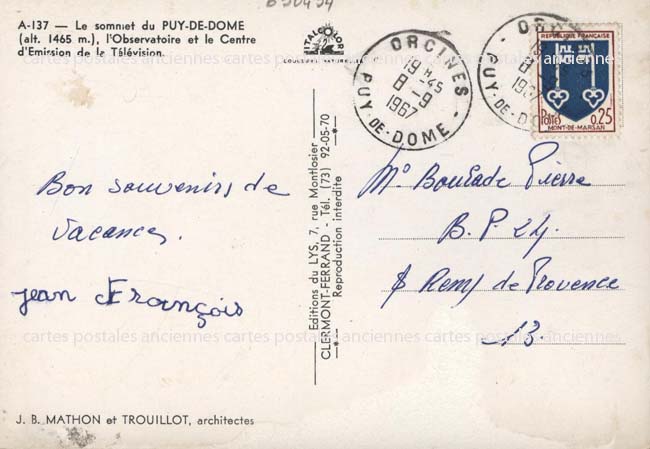 A-137 — Le sommet du PUY-DE-DOME
(alt. 1465 m.), l'Observatoire et le Centre
d'Emission de la Télévision.
ITALCOLOR
COULEURS NATURELLES
ORCINES
19 H 45
8 - 9
1967
PUY-DE-DOME
19 H 45
8 - 9
1967
PUY-DE-DO
REPUBLIQUE FRANÇAISE
POSTES 0,25
MONT-DE-MARSAN
Bon souvenirs de
vacances.
jean François
Editions du LYS, 7, rue Montlosier
CLERMONT-FERRAND - Tél. (73) 92-05-70
Reproduction interdite
Mo Boulade Pierre
B.P 24
St Remy de Provence
13.
cartes postales anciennes cartes postales anciennes cartes postales anciennes
cartes postales anciennes cartes postales anciennes cartes postales anciennes
J. B. MATHON et TROUILLOT, architectes